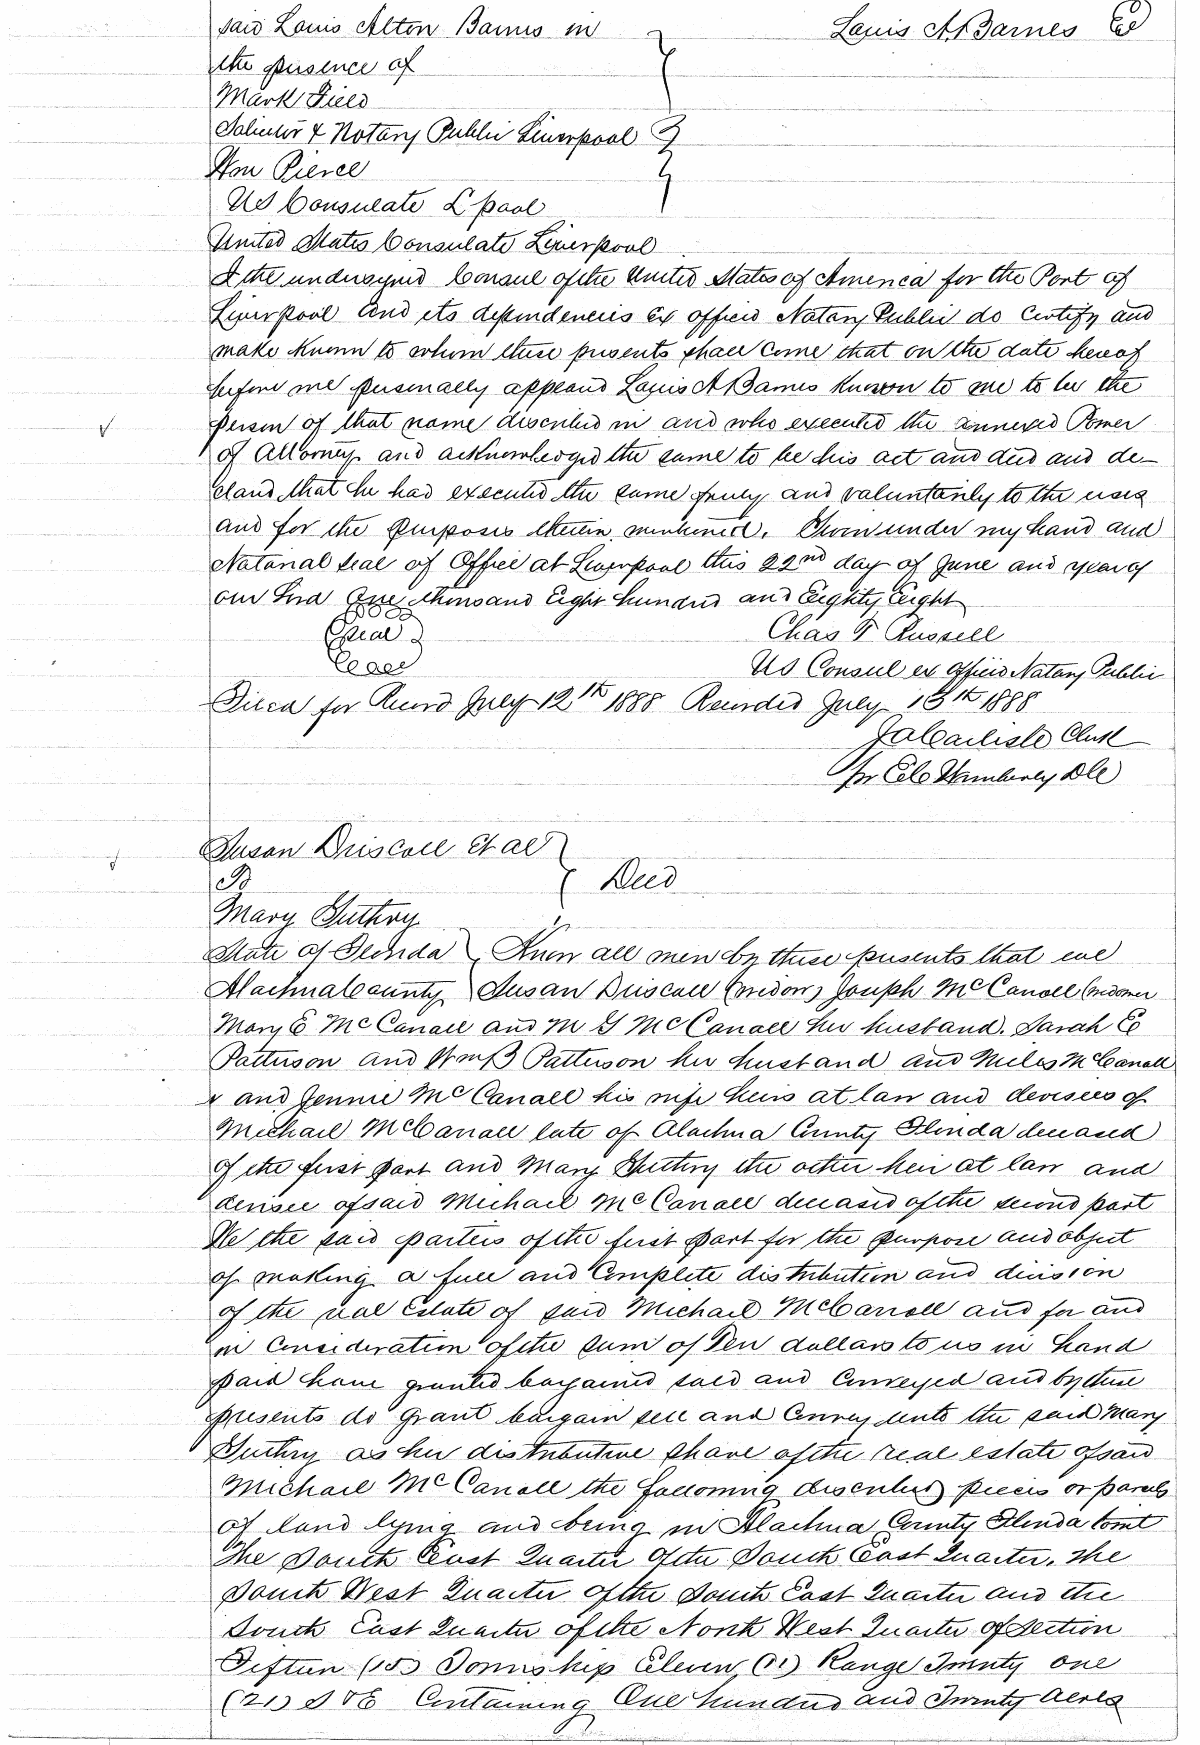 said Louis Alton Barnes in
Louis A Barnes
the presence of
Mark Field
Solicitor & Notary Public Liverpool
Wm Pierce
US Consulate L'pool
United States Consulate Liverpool
I the undersigned Consul of the United States of America for the Port of
Liverpool and its dependencies Ex officio Notary Public do Certify and
make known to whom these presents shall come that on the date hereof
before me personally appeard Louis A Barnes known to me to be the
person of that name described in and who executed the annexed Power
of Attorney and acknowledged the same to be his act and deed and de-
clared that he had executed the same freely and voluntarily to the uses
and for the purposes therein mentioned. Given under my hand and
Notarial seal of Office at Liverpool this 22nd day of June and year of
our Lord One thousand Eight hundred and Eighty Eight
Seal
Chas T Russell
US Consul ex officio Notary Public
Filed for Record July 12th 1888 Recorded July 13th 1888
J A Carlisle Clerk
pr
Susan Driscoll et al
To
Deed
Mary Guthry
State of Florida Know all men by these presents that we
Alachua County Susan Driscoll (widow) Joseph McCarroll (widower
Mary E McCarroll and M G McCarroll her husband. Sarah E
Patterson and Wm B Patterson her husband and Miles McCarroll
& and Jennie McCarroll his wife heirs at law and devisees of
Michael McCarroll late of Alachua County Florida deceased
of the first part and Mary Guthry the other heir at law and
devisee of said Michael McCarroll deceased of the second part
We the said parties of the first part for the purpose and object
of making a full and Complete distribution and division
of the real Estate of said Michael McCarroll and for and
in Consideration of the sum of Ten dollars to us in hand
paid have granted bargained sold and Conveyed and by these
presents do grant bargain sell and Convey unto the said Mary
Guthry as her distributive share of the real estate of said
Michael McCarroll the following described pieces or parcels
of land lying and being in Alachua County Florida towit
The South East Quarter of the South East Quarter. The
South West Quarter of the South East Quarter and the
South East Quarter of the North West Quarter of Section
Fifteen (15) Township Eleven (11) Range Twenty one
(21) S & E Containing One hundred and Twenty Acres